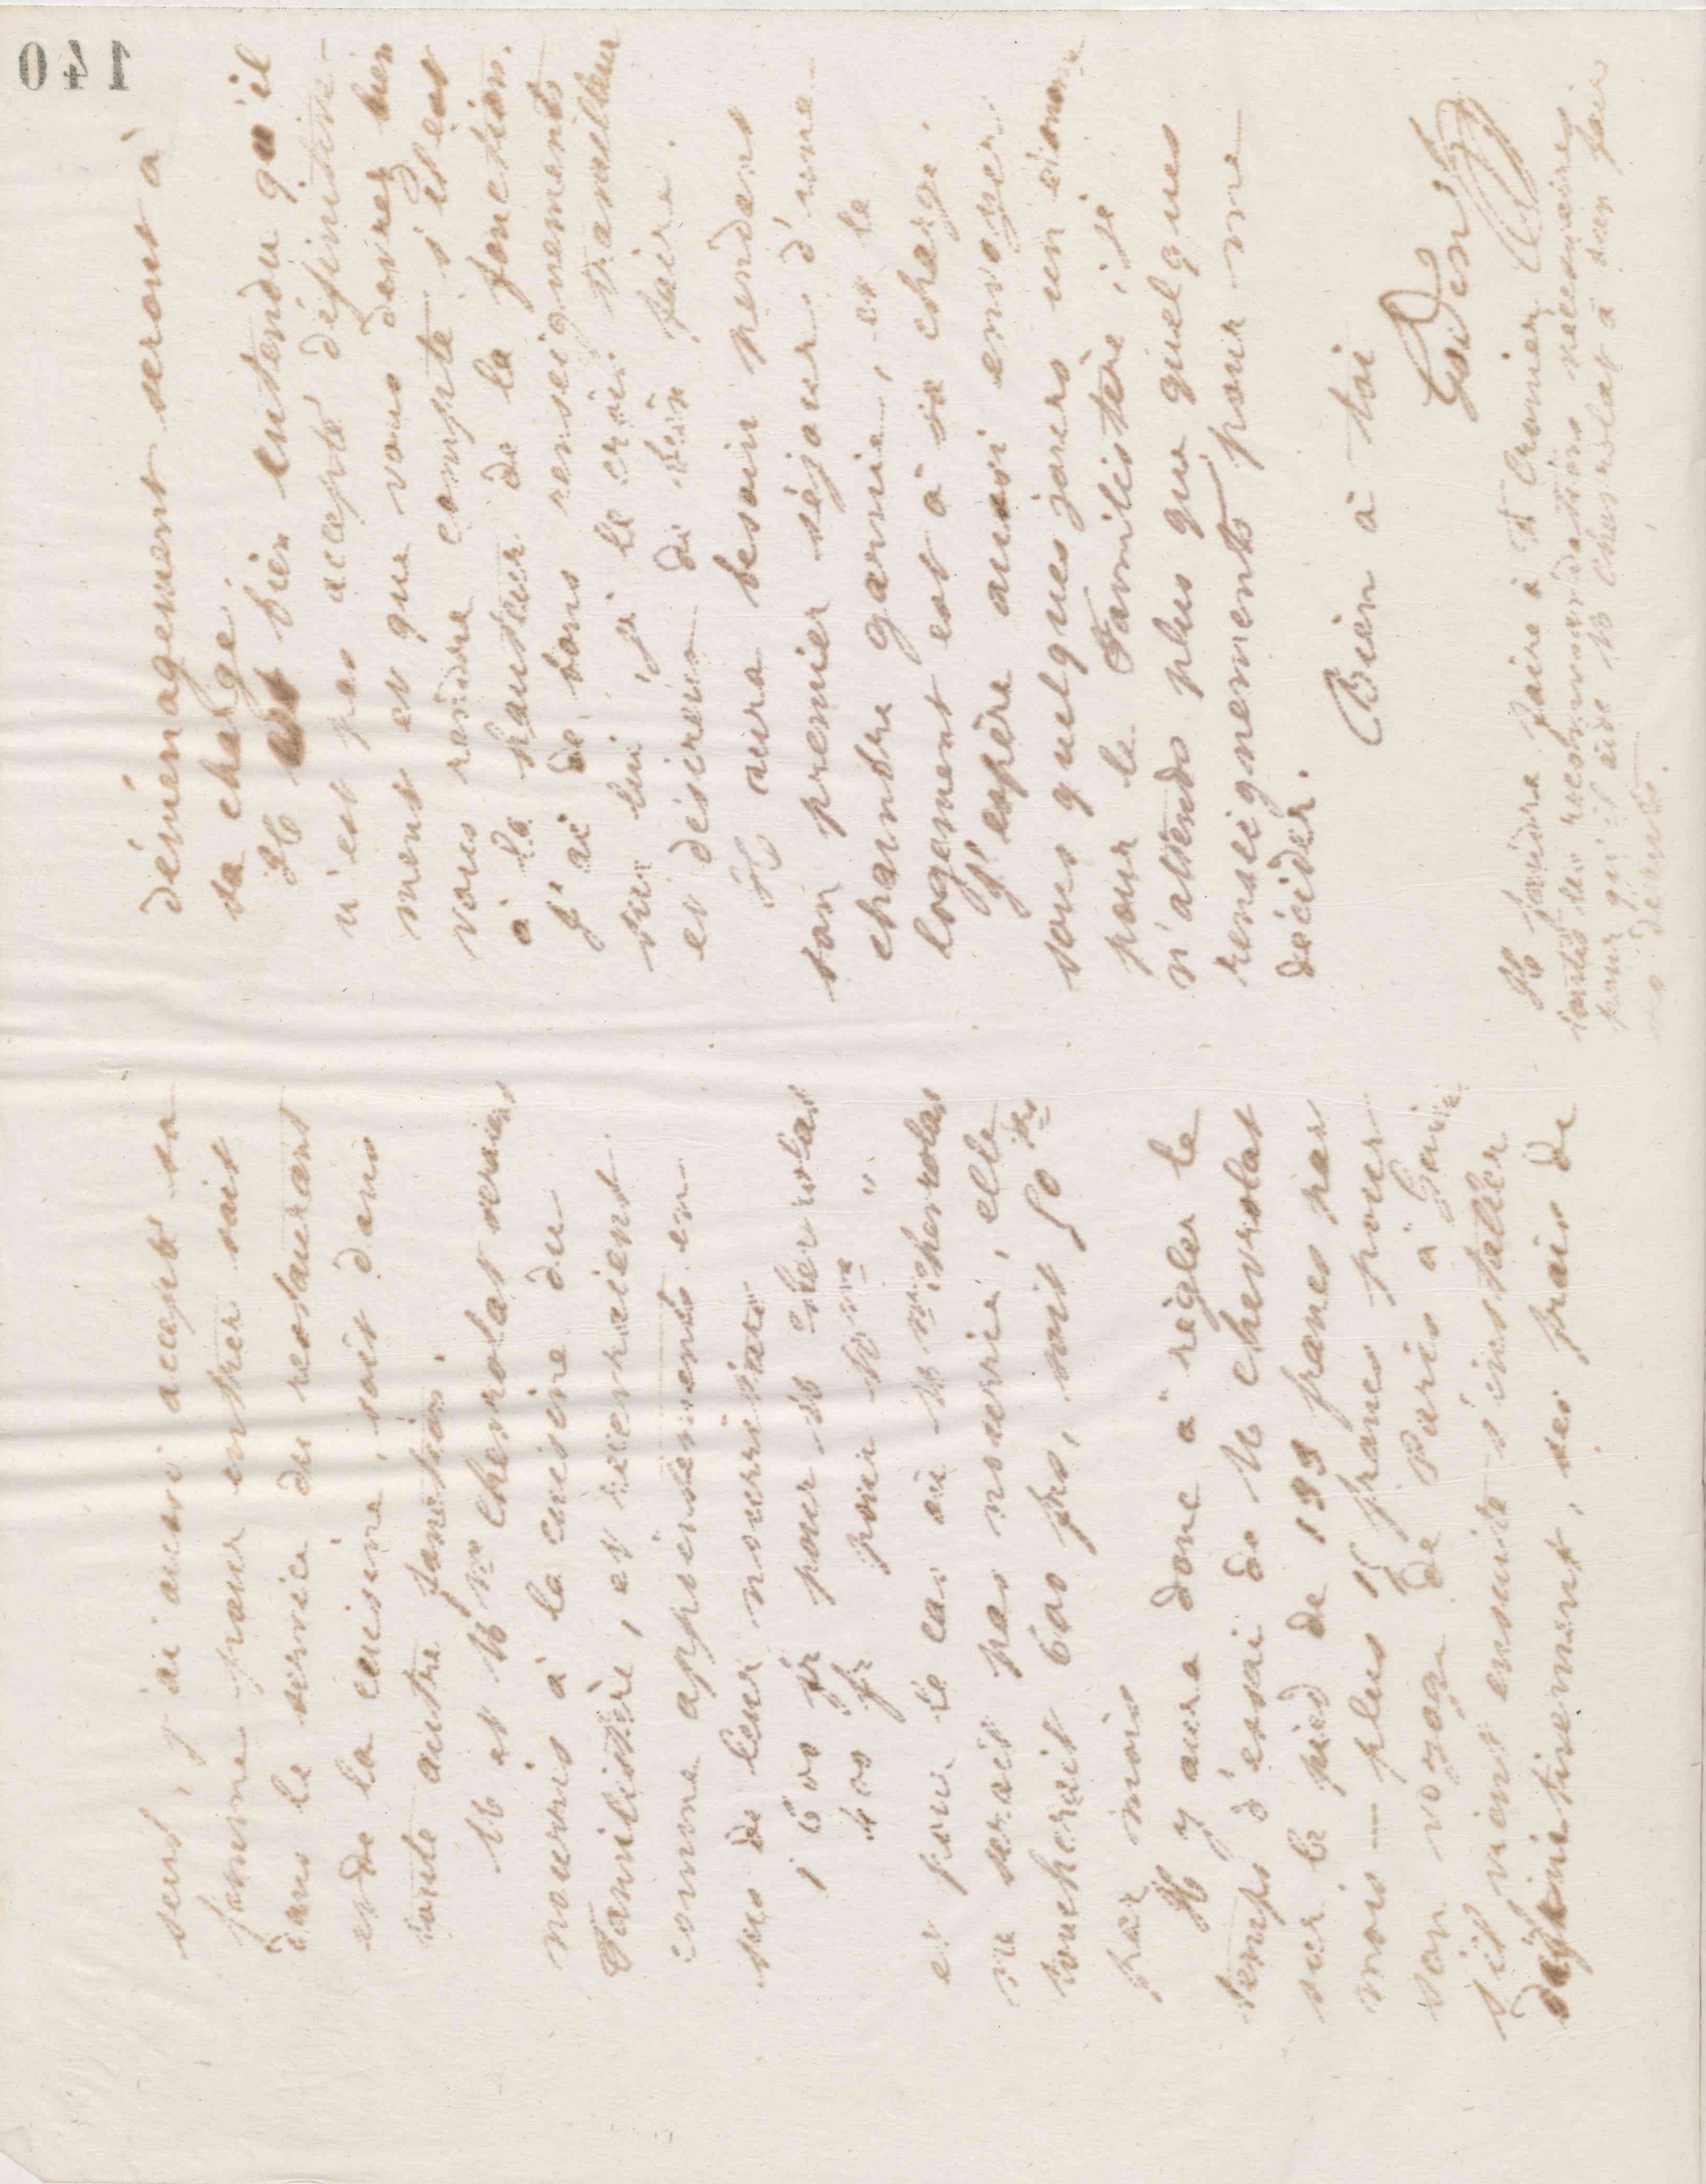 seul, j'ai aussi accepté sa
femme pour entrer soit
dans le service du restaurant
et de la cuisine, soit dans
toute autre fonction.
M et Mme Chevrolat seraient
nourris à la cuisine du
Familistère, et recevraient
comme appointements en
sus de leur nourriture
1600 fr pour M Chevrolat
400 fr pour Mme "
et pour le cas où Mme Chevrolat
ne serait pas nourrie, elle
toucherait 600 frs, soit 50 frs
par mois
Il y aura donc à régler le
temps d'essai de M Chevrolat
sur le pied de 133 francs par
mois — plus 15 francs pour
son voyage de Paris à Guise
S'il vient ensuite s'installer
définitivement, ses frais de
déménagement seront à
sa charge.
Il est bien entendu qu'il
n'est pas accepté définitive-
ment et que vous devrez bien
vous rendre compte s'il est
à la hauteur de la fonction.
J'ai de bons renseignements
sur lui, je le crois travailleur
et désireux de bien faire.
Il aura besoin pendant
son premier séjour d'une
chambre garnie, et le
logement est à sa charge.
J'espère aussi envoyer
sous quelques jours un économe
pour le Familistère ; je
n'attends plus que quelques
renseignements pour me
décider.
Bien à toi
Godin
Il faudra faire à
toutes les recommandations nécessaires
pour qu'il aide M Chevrolat à bien faire
ses débuts.
140